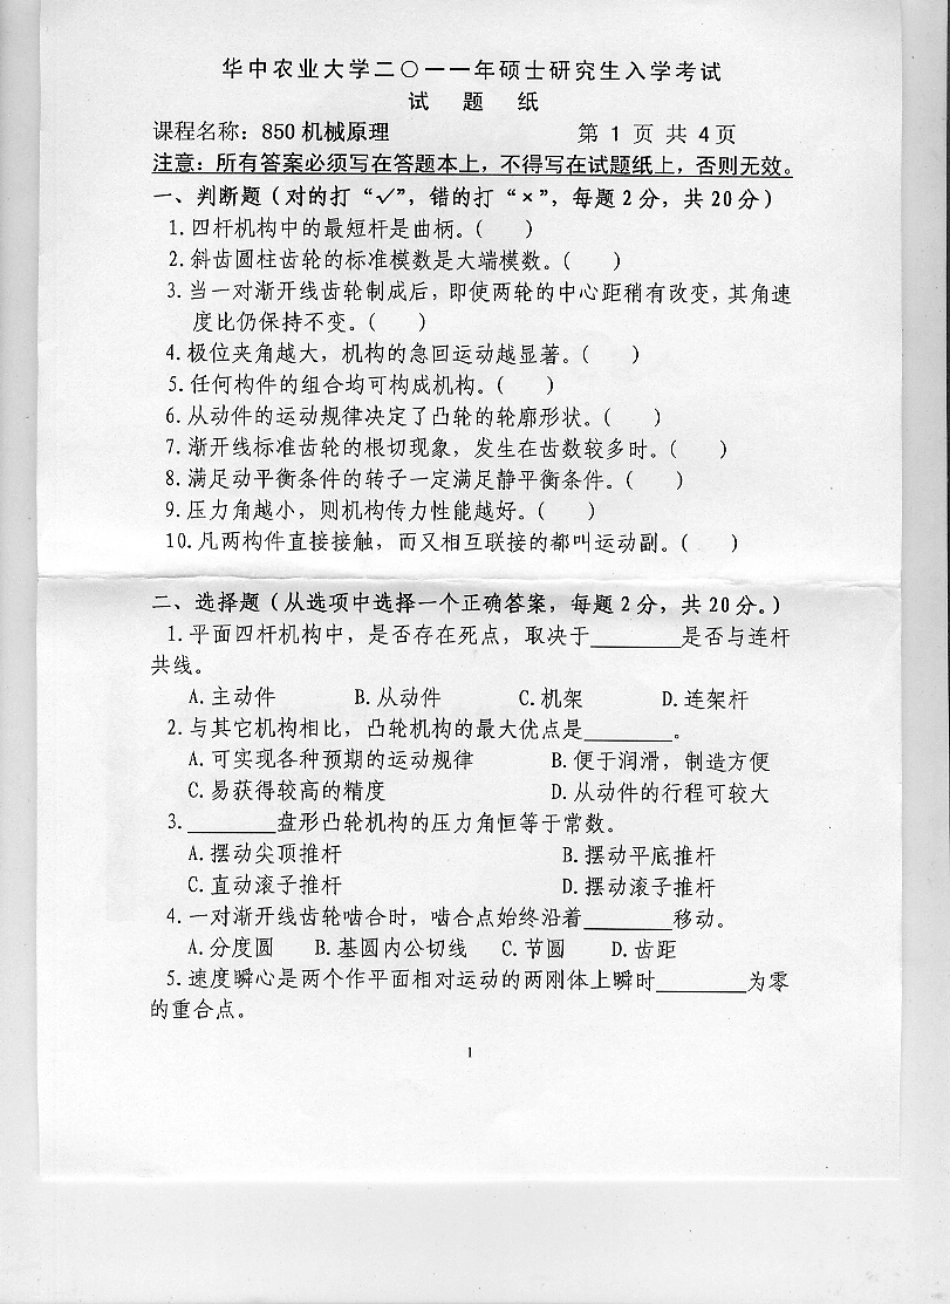 华中农业大学二〇一一年硕士研究生入学考试
试 题 纸
课程名称：850 机械原理 第 1 页 共 4页
注意：所有答案必须写在答题本上，不得写在试题纸上，否则无效。
一、判断题（对的打“√”，错的打“×”，每题2分，共20分）
1.四杆机构中的最短杆是曲柄。（ ）
2.斜齿圆柱齿轮的标准模数是大端模数。（ ）
3.当一对渐开线齿轮制成后，即使两轮的中心距稍有改变，其角速
度比仍保持不变。（ ）
4.极位夹角越大，机构的急回运动越显著。（ ）
5.任何构件的组合均可构成机构。（ ）
6.从动件的运动规律决定了凸轮的轮廓形状。（ ）
7.渐开线标准齿轮的根切现象，发生在齿数较多时。（ ）
8.满足动平衡条件的转子一定满足静平衡条件。（ ）
9.压力角越小，则机构传力性能越好。（ ）
10.凡两构件直接接触，而又相互联接的都叫运动副。（ ）
二、选择题（从选项中选择一个正确答案，每题2分，共20分。）
1.平面四杆机构中，是否存在死点，取决于________是否与连杆
共线。
A.主动件 B.从动件 C.机架 D.连架杆
2.与其它机构相比，凸轮机构的最大优点是________。
A.可实现各种预期的运动规律 B.便于润滑，制造方便
C.易获得较高的精度 D.从动件的行程可较大
3.________盘形凸轮机构的压力角恒等于常数。
A.摆动尖顶推杆 B.摆动平底推杆
C.直动滚子推杆 D.摆动滚子推杆
4.一对渐开线齿轮啮合时，啮合点始终沿着________移动。
A.分度圆 B.基圆内公切线 C.节圆 D.齿距
5.速度瞬心是两个作平面相对运动的两刚体上瞬时________为零
的重合点。
1